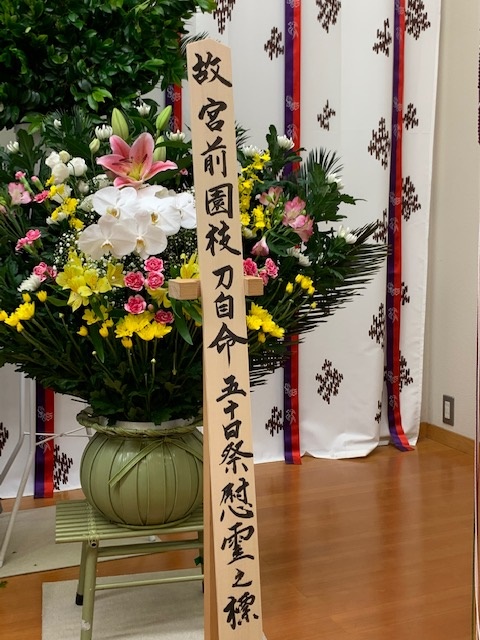 故宮前園枝刀自命 五十日祭慰霊之標